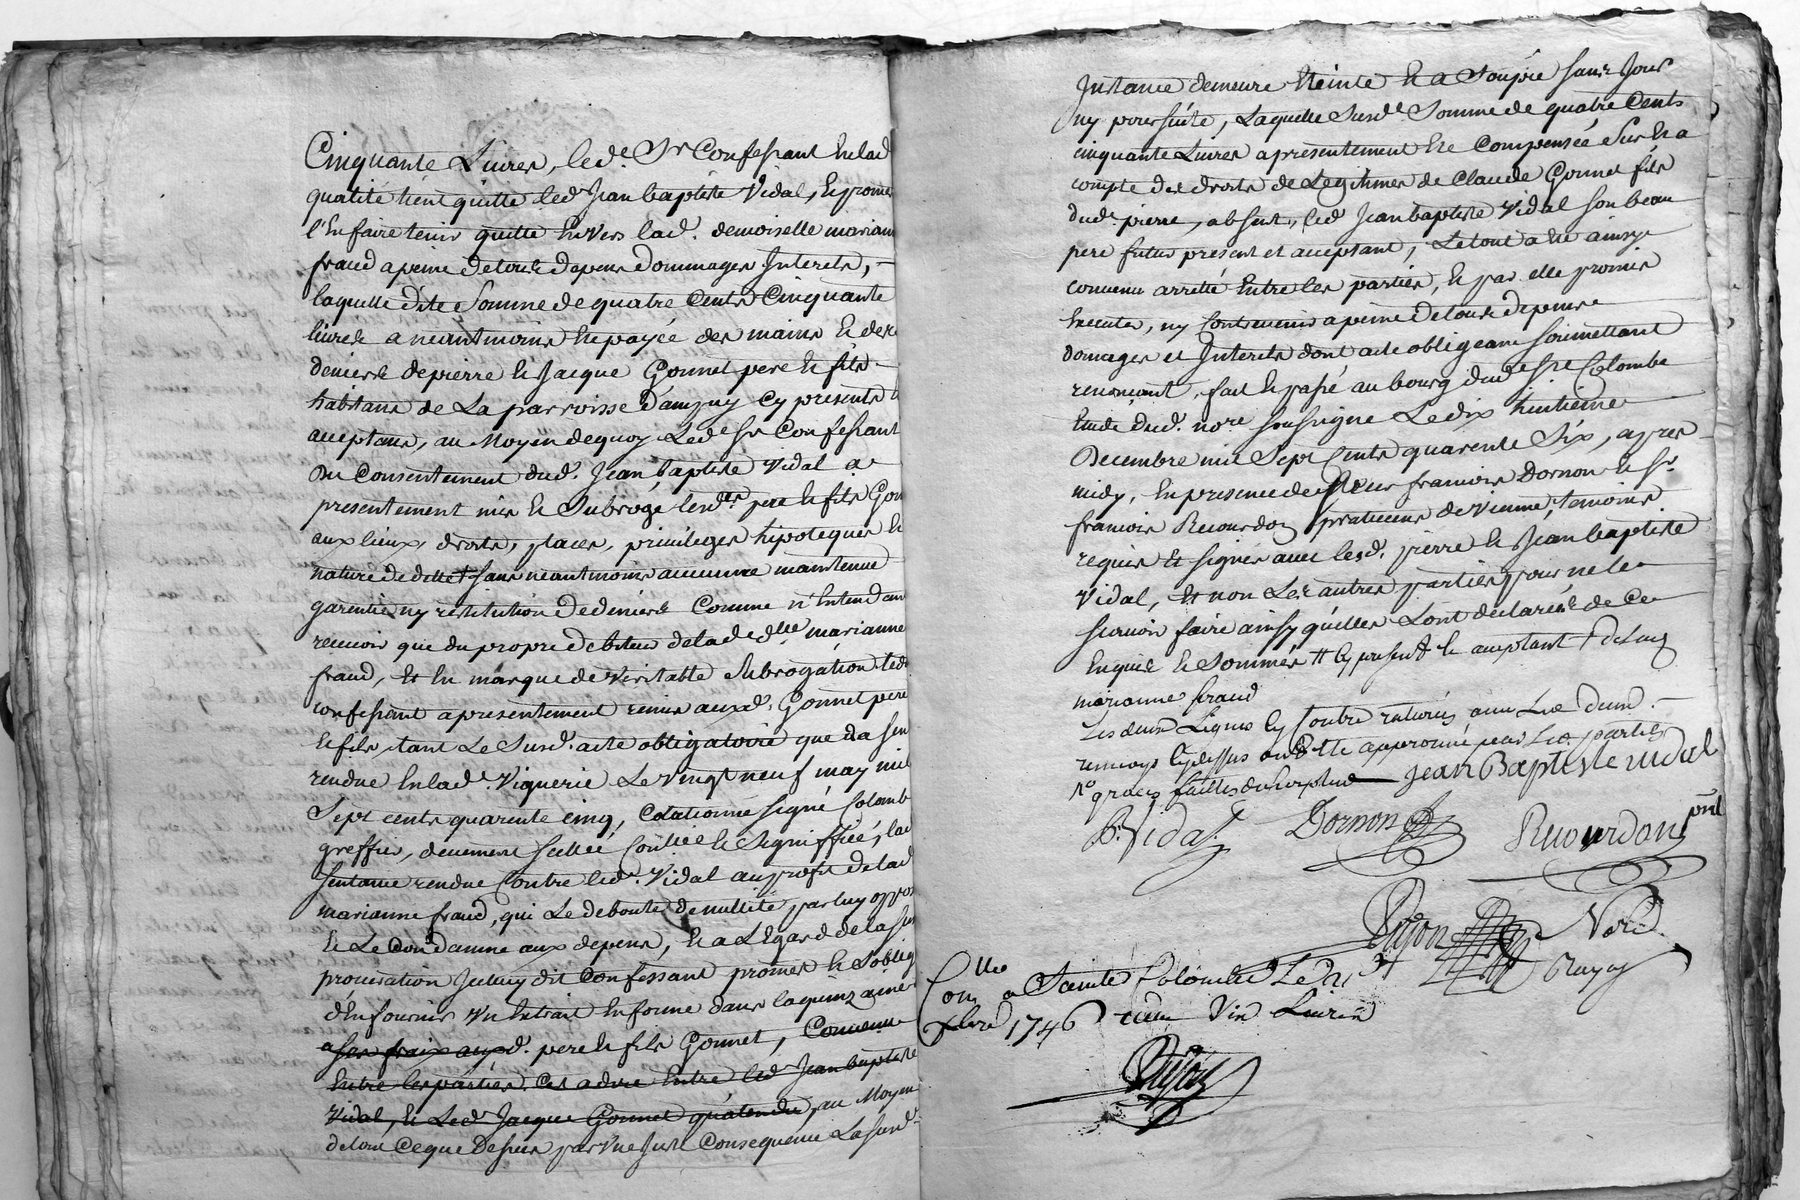 Cinquante Livres, led.t Sr Confessant En lad
qualité tient quitte led Jean baptiste Vidal, Et promet
l'En faire tenir quitte Envers lad. demoiselle mariane
fraud a peine de tous depens Dommages Interets,
laquelle dite Somme de quatre Cents Cinquante
livres a neantmoins Ete payée des mains Et des
deniers de pierre Et Jacque Gonnet pere Et fils
habitans de La parroisse d'ampuy Cy presents
aceptans, au Moyen de quoy Led.t Sr Confessant
Du Consentement dud. Jean baptiste Vidal a
presentement mis Et Subrogé lesd.ts pere Et fils Gon
aux lieux, droits, places, privileges hipoteques Et
nature de dette sans neantmoins aucune maintenue
garentie ny restitution de deniers Comme n'Entendant
recevoir que du propre debiteur de lad.e d.lle marianne
fraud, Et En marque de Veritable Subrogation led
confessant a presentement remis auxd. Gonnet pere
Et fils, tant Le Susd. acte obligatoire que La sen
rendue En lad. Viguerie Le Vingt neuf may mil
Sept cents quarente cinq, Colationné signé Colomb
greffier, deuement scellée Contrôlée Et Signiffiée, la
sentence rendue Contre led. Vidal au profit de lad
marianne fraud, qui Le deboute de nullité par luy oppo
Et Le Condamne aux depens, Et a L'Egard de la su
procuration Iceluy dit Confessant promet Et S'oblig
d'En fournir Un Extrait En forme dans la quinzaine
a ses fraix auxd. pere Et fils Gonnet, Convenu
Entre les parties. Cet a dire Entre led Jean baptiste
Vidal, Et Led Jacque Gonnet qu'atendu, au Moyen
de tout Ce que Dessus par Une Juste Consequence La susd.
Instance demeure Eteinte Et a Soupie sans Jour
ny poursuite, Laquelle Susd.e Somme de quatre Cents
cinquante Livres a presentement Ete Compensée Sur Et a
compte des droits de Legitimes de Claude Gonnet fils
dud. pierre, absent, led Jean baptiste Vidal son beau
pere futur present et aceptant, Le tout a Eté ainsy
convenu arretté Entre les parties, Et par elle promis
Executer, ny Contrevenir a peine de tous depens
domages et Interets dont acte obligeans soumettant
renonçant, fait Et passé au bourg dud. ste Colombe
Etude dud. nore soussigné Le dix huitieme
Decembre mil Sept Cents quarente Six, apres
midy, En presence de Sieur francois Dornon Et Sr
francois Recourdon praticiens de Vienne, temoins
requis Et signés avec lesd. pierre Et Jean baptiste
Vidal, Et non Les autres parties pour ne le
scavoir faire ainsy qu'elles L'ont déclaré de Ce
Enquis Et Sommés # Cy present Et aceptant + de lad
marianne fraud
Les deux Lignes Cy Contre raturés avec Les deux
renvoys Cy dessus ont Ete approuvé par Les parties
graces faittes du surplus Jean Baptiste vidal
P. Vidal Dornon Recourdon pnt
Dujon Nore
Royal
Con.llé a Sainte Colombe Le 31
Xbre 1746 reçu Vin Livres
Dujon